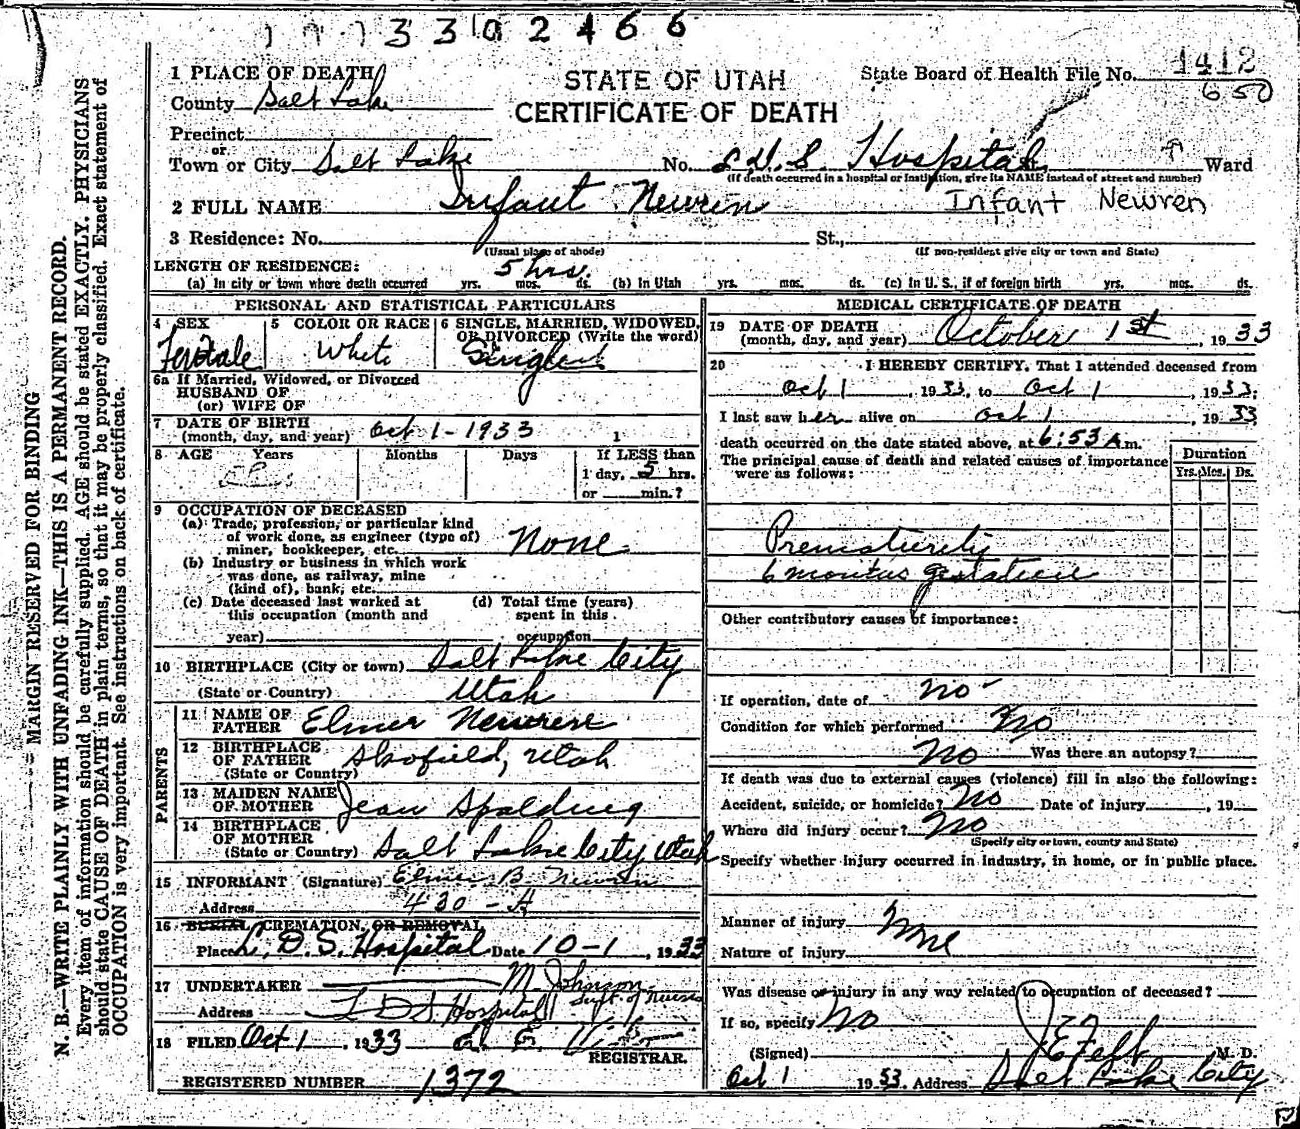 3 3 0 2 4 6 6
1 PLACE OF DEATH
STATE OF UTAH
CERTIFICATE OF DEATH
State Board of Health File No. 1412
650
County Salt Lake
Precinct
or
Town or City Salt Lake No. L.D.S. Hospital St. Ward
(If death occurred in a hospital or institution, give its NAME instead of street and number)
2 FULL NAME Infant Newren Infant Newren
3 Residence: No. St.,
(Usual place of abode) (If non-resident give city or town and State)
LENGTH OF RESIDENCE: 5 hrs.
(a) In city or town where death occurred yrs. mos. ds. (b) In Utah yrs. mos. ds. (c) In U. S., if of foreign birth yrs. mos. ds.
PERSONAL AND STATISTICAL PARTICULARS
4 SEX Female
5 COLOR OR RACE White
6 SINGLE, MARRIED, WIDOWED, OR DIVORCED (Write the word) Single
6a If Married, Widowed, or Divorced
HUSBAND OF
(or) WIFE OF
7 DATE OF BIRTH
(month, day, and year) Oct 1-1933 1
8 AGE Years Months Days If LESS than
1 day, 5 hrs.
or min.?
9 OCCUPATION OF DECEASED
(a) Trade, profession, or particular kind
of work done, as engineer (type of)
miner, bookkeeper, etc. None
(b) Industry or business in which work
was done, as railway, mine
(kind of), bank, etc.
(c) Date deceased last worked at
this occupation (month and
year)
(d) Total time (years)
spent in this
occupation
10 BIRTHPLACE (City or town) Salt Lake City
(State or Country) Utah
PARENTS
11 NAME OF
FATHER Elmer Newren
12 BIRTHPLACE
OF FATHER Skofield, Utah
(State or Country)
13 MAIDEN NAME
OF MOTHER Jean Spalding
14 BIRTHPLACE
OF MOTHER
(State or Country) Salt Lake City Utah
15 INFORMANT (Signature) Elmer B. Newren
Address 430 - A
16 BURIAL, CREMATION, OR REMOVAL
Place L. D. S. Hospital Date 10-1, 1933
17 UNDERTAKER M. Johnson
Supt. of Nurses
Address L D S Hospital
18 FILED Oct 1, 1933
REGISTRAR.
REGISTERED NUMBER 1372
MEDICAL CERTIFICATE OF DEATH
19 DATE OF DEATH
(month, day, and year) October 1st, 1933
20 I HEREBY CERTIFY, That I attended deceased from
Oct 1, 1933, to Oct 1, 1933;
I last saw her alive on Oct 1, 1933,
death occurred on the date stated above, at 6:53 A.m.
The principal cause of death and related causes of importance
were as follows:
Duration
Yrs. Mos. Ds.
Prematurity
6 months gestation
Other contributory causes of importance:
If operation, date of no
Condition for which performed No
No Was there an autopsy?
If death was due to external causes (violence) fill in also the following:
Accident, suicide, or homicide? No Date of injury, 19
Where did injury occur? No
(Specify city or town, county and State)
Specify whether injury occurred in industry, in home, or in public place.
Manner of injury None
Nature of injury
Was disease or injury in any way related to occupation of deceased?
If so, specify No
(Signed) J E Felt M. D.
Oct 1 1933. Address Salt Lake City
MARGIN RESERVED FOR BINDING
N. B.—WRITE PLAINLY WITH UNFADING INK—THIS IS A PERMANENT RECORD.
Every item of information should be carefully supplied. AGE should be stated EXACTLY. PHYSICIANS
should state CAUSE OF DEATH in plain terms, so that it may be properly classified. Exact statement of
OCCUPATION is very important. See instructions on back of certificate.